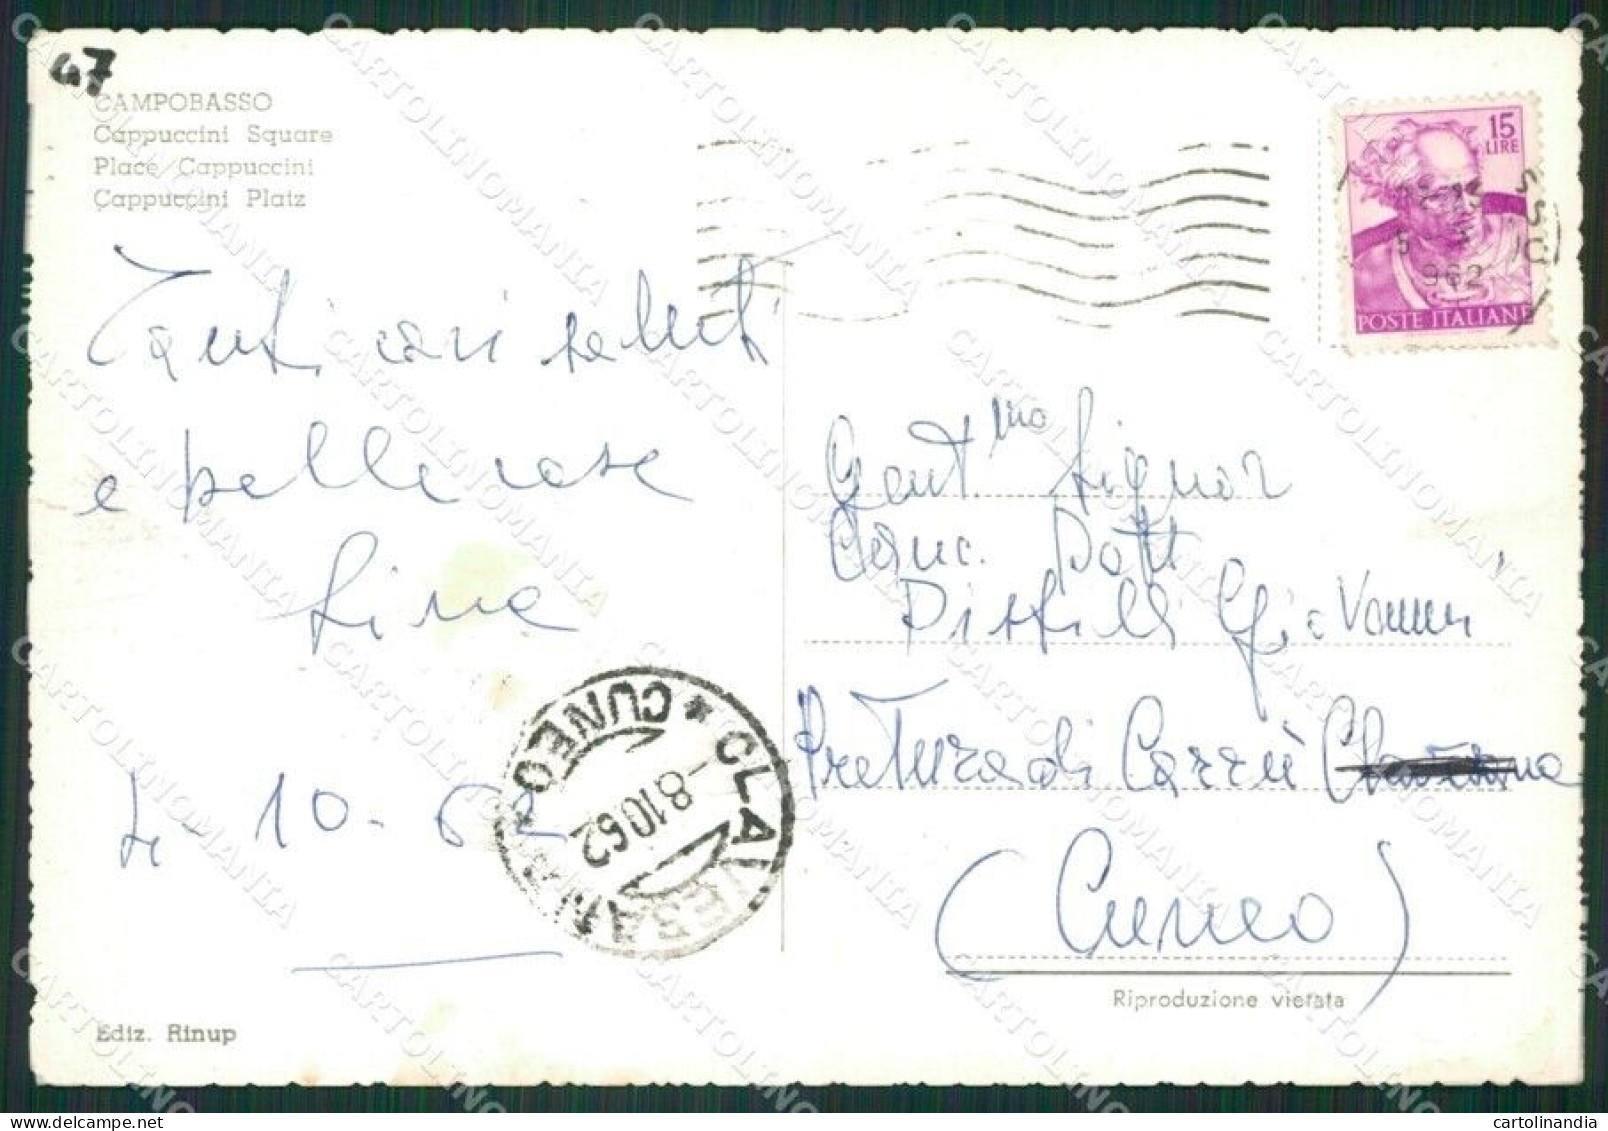 47
CAMPOBASSO
Cappuccini Square
Place Cappuccini
Cappuccini Platz
15
LIRE
POSTE ITALIANE
962
Tanti cari saluti
e belle cose
Lina
4-10-62
CUNEO * CLAVESANA *
-8.10.62
Gent.mo Signor
Canc. Dott
Giovanni
Pretura di Carrù
(Cuneo)
Riproduzione vietata
Ediz. Rinup
CARTOLINOMANIA
cartolinandia